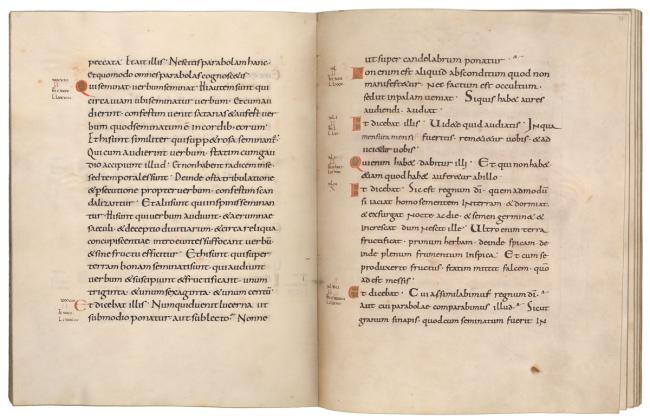 peccata· Et ait illis· Nescitis parabolam hanc·
et quomodo omnes parabolas cognoscetis
Qui seminat· verbum seminat· Hi autem sunt qui
circa uiam ubi seminatur verbum· Et cum au
dierint· confestim venit satanas & aufert ver
bum quod seminatum ē in cordib· eorum·
Et hi sunt similiter qui sup petrosa seminant·
Qui cum audierint verbum· statim cum gau
dio accipiunt illud· Et non habent radicem in se
sed temporales sunt· Deinde orta tribulatione
& psecutione propter verbum· confestim scan
dalizantur· Et alii sunt qui in spinis seminan
tur· Hi sunt qui verbum audiunt· & aerumnae
saeculi· & deceptio diuitiarum· & circa reliqua
concupiscentiae introeuntes suffocant verbū
& sine fructu efficitur· Et hi sunt qui super
terram bonam seminati sunt· qui audiunt
verbum & suscipiunt & fructificant· unum
triginta· & unum sexaginta· & unum centū
Et dicebat illis· Numquid uenit lucerna ut
sub modio ponatur· aut sub lecto· Nonne
ut super candelabrum ponatur·
Non enim est aliquid absconditum quod non
manifestetur· Nec factum est occultum·
sed ut in palam ueniat· Si quis habet aures
audiendi· audiat·
Et dicebat illis· Uidete quid audiatis· In qua
mensura mensi fueritis· remetietur uobis· & ad
icietur uobis
Qui enim habet dabitur illi· Et qui non habet
etiam quod habet auferetur ab illo·
Et dicebat· Sic est regnum dī· quem ad modū
si iaciat homo sementem in terram· & dormiat·
& exsurgat nocte ac die· & semen germinet &
increscat dum nescit ille· Ultro enim terra
fructificat· primum herbam· deinde spicam· de
inde plenum frumentum in spica· Et cum se
produxerit fructus· statim mittit falcem· quo
adest messis·
Et dicebat· Cui assimilabimus regnum dī·
aut cui parabolae comparabimus illud· Sicut
granum sinapis· quod cum seminatum fuerit in